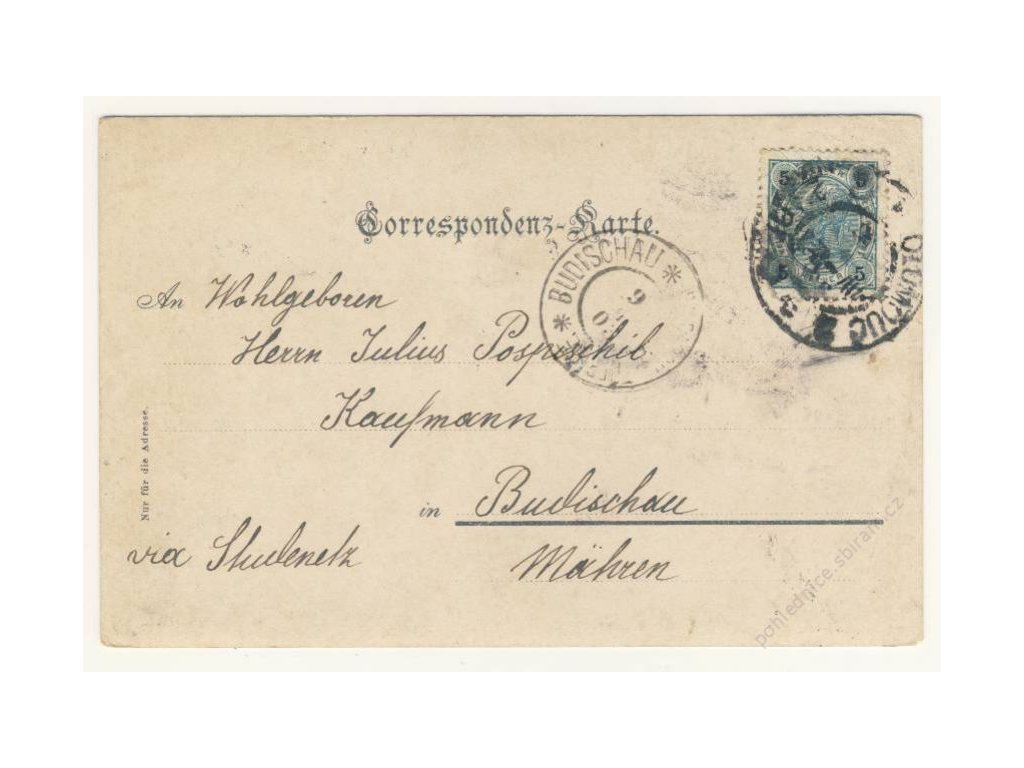 Correspondenz-Karte.
An Wohlgeboren
Herrn Julius Pospischil
Kaufmann
in Budischau
via Studenetz
Mähren
Nur für die Adresse.
5 5
5 5
OLOMOUC
* BUDISCHAU *
9
pohlednice.sbiram.cz